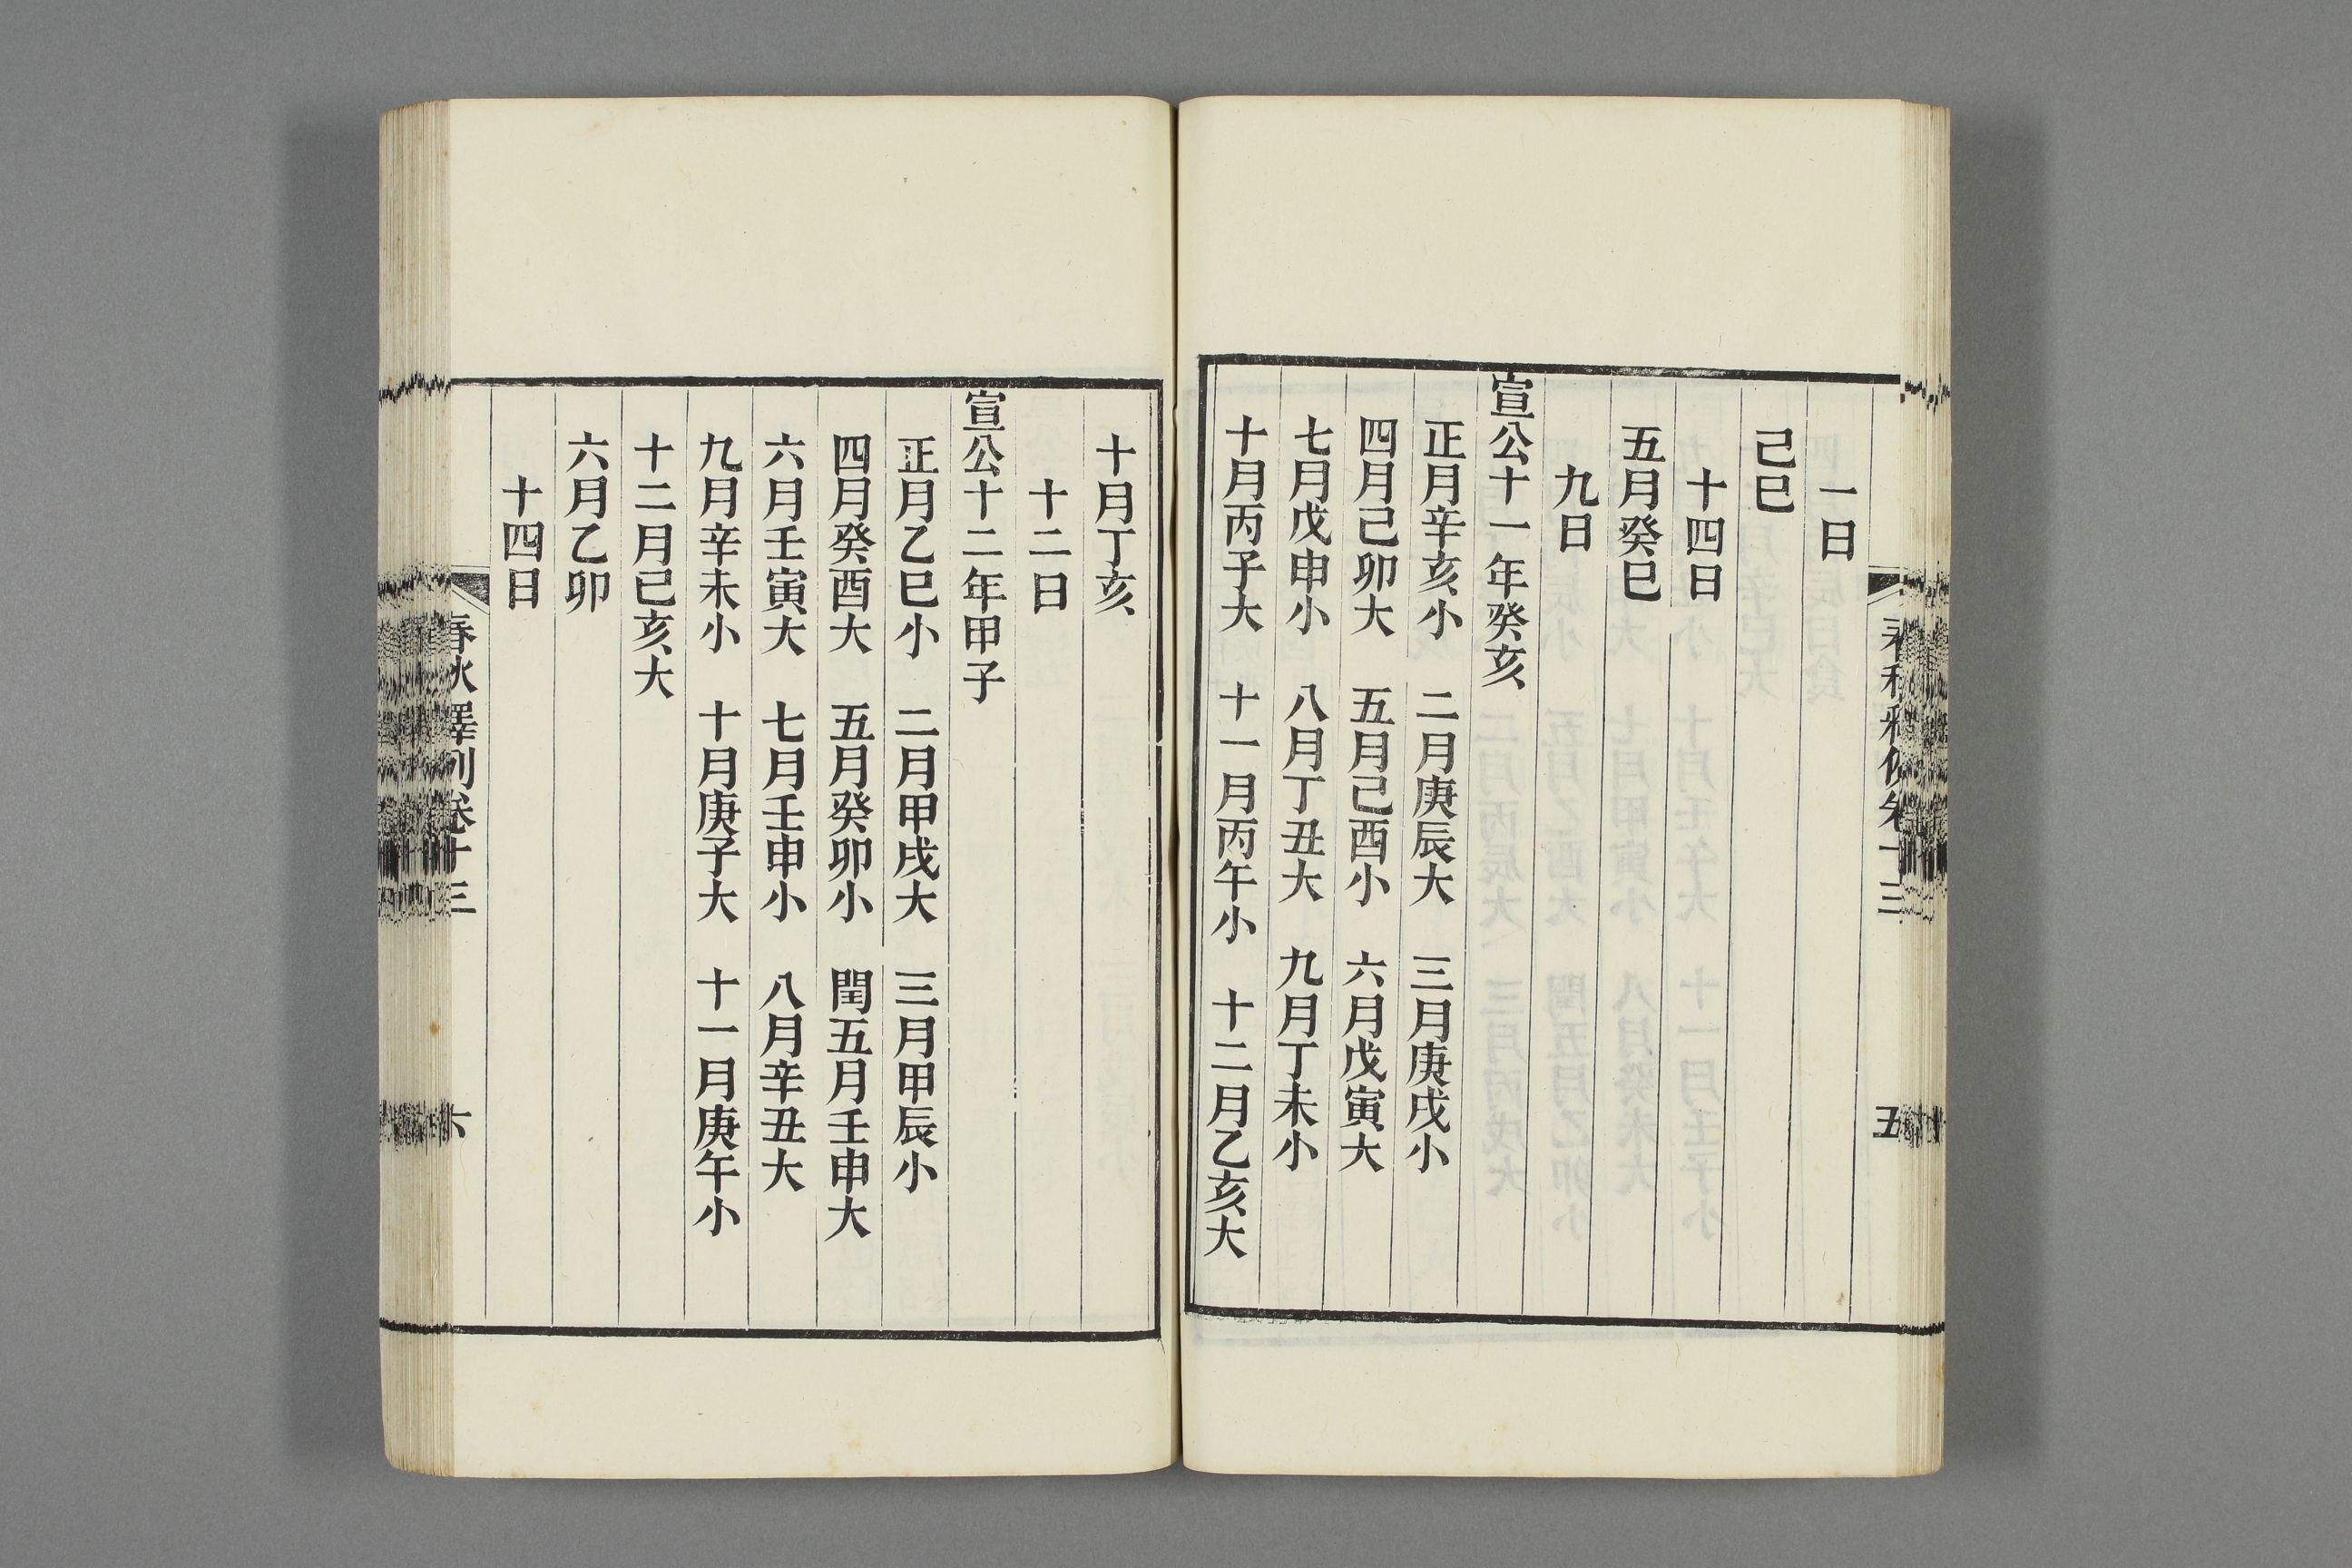 一日
己巳
十四日
五月癸巳
九日
宣公十一年癸亥
正月辛亥小　二月庚辰大　三月庚戌小
四月己卯大　五月己酉小　六月戊寅大
七月戊申小　八月丁丑大　九月丁未小
十月丙子大　十一月丙午小　十二月乙亥大
五
十月丁亥
十二日
宣公十二年甲子
正月乙巳小　二月甲戌大　三月甲辰小
四月癸酉大　五月癸卯小　閏五月壬申大
六月壬寅大　七月壬申小　八月辛丑大
九月辛未小　十月庚子大　十一月庚午小
十二月己亥大
六月乙卯
十四日
春秋釋例卷十三
六